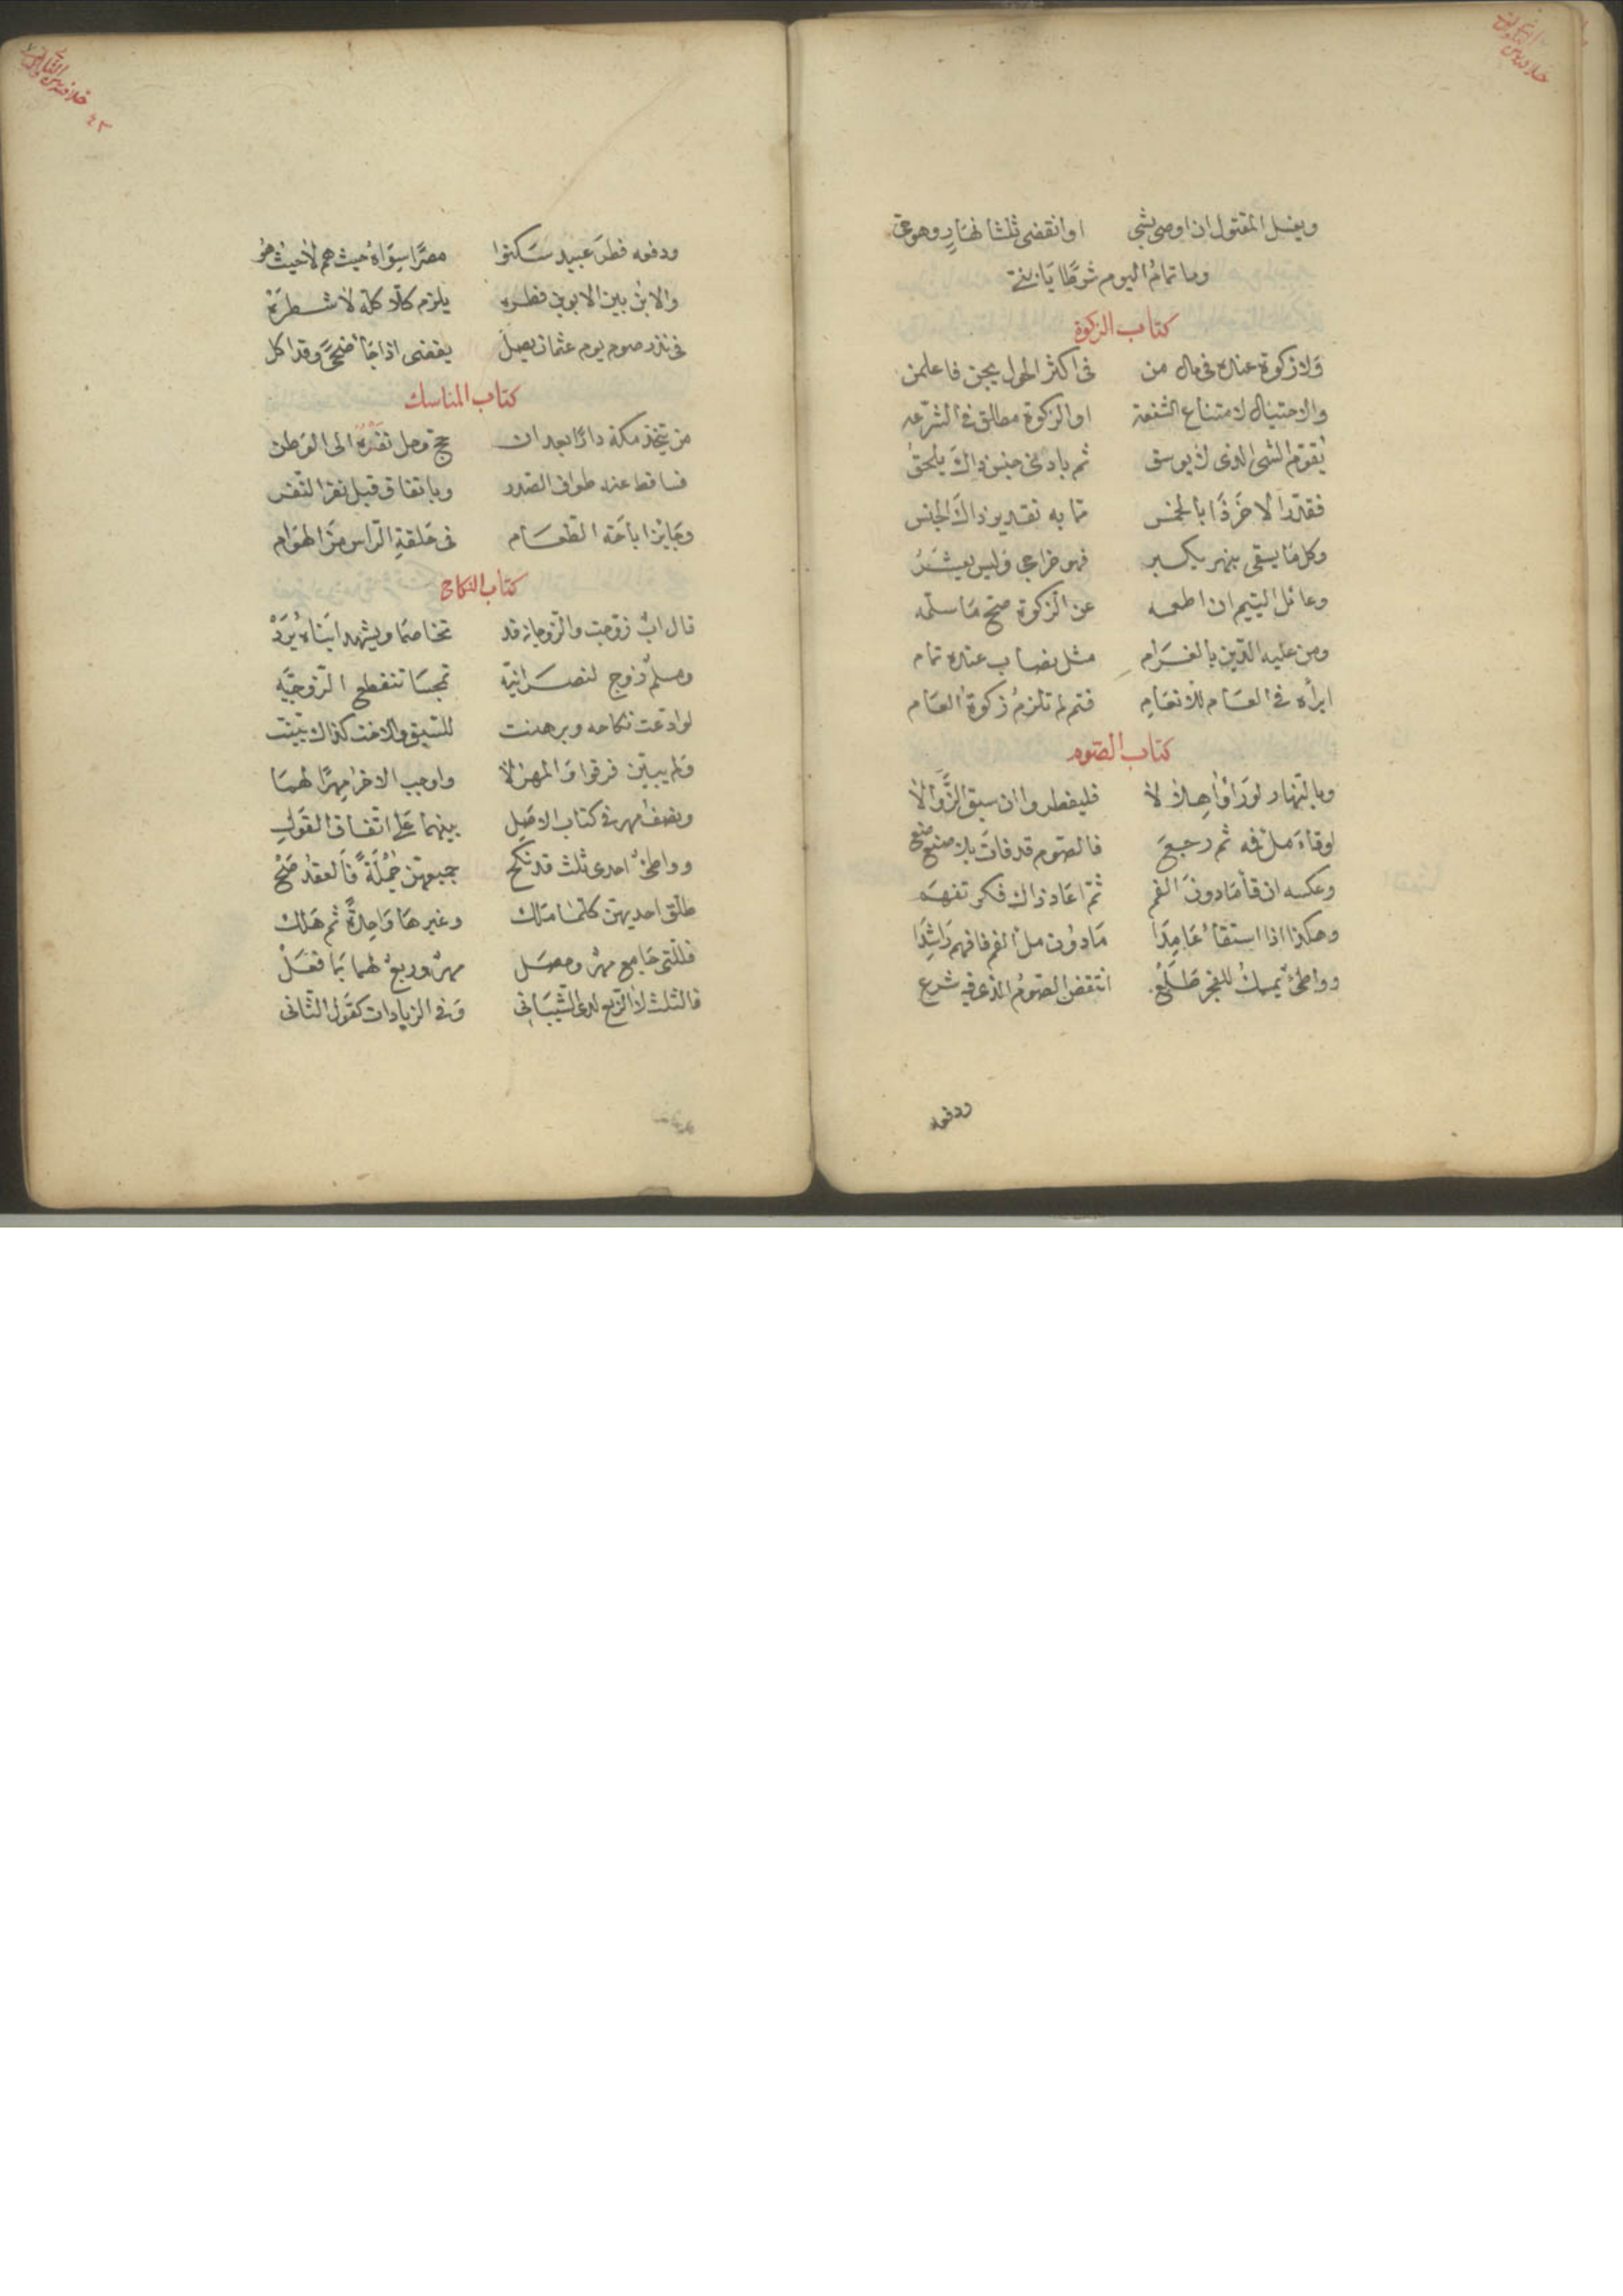 ويغسل المقتول ان اوصى بشي او انقضى ثلثا نهار وهو حي
وما تمام اليوم شرطا يا بني
كتاب الزكوة
ولا زكوة عنده في مال من في اكثر الحول يجن فاعلمن
والاحتيال لامتناع الشفعة او الزكوة مطلق في الشرعه
يقوم الشي الذي لا يوسق ثم بادنى جنس ذاك يلحق
فقدر الاخر ذا بالخمس مما به تقدير ذاك الجنس
وكل ما يسقى بنهر يكبر فهو خراجي وليس يعشر
وعائل اليتيم ان اطعمه عن الزكوة صح ما سلمه
ومن عليه الدين بالغرام مثل نصاب عنده تمام
ابرأه في العام للانعام فتم لم تلزم زكوة العام
كتاب الصوم
وبالنهار لو راوا هلالا فليفطروا ان سبق الزوالا
لو قاء ملأ فه ثم رجع فالصوم قد فات بلا صنع صنع
وعكسه ان قأ ما دون الفم ثم اعاد ذاك فكر تفهم
وهكذا اذا استقأ عامدا ما دون ملأ الفم فافهم راشدا
وواطئ يمسك للفجر طلع انتقض الصوم الذي فيه شرع
ودفعه
ودفعه فطر عبيد سكنوا مصرا سواه حيث هم لا حيث هو
والابن بين الابوين فطره يلزم كلا كله لا شطره
في نذر صوم يوم عثمان يصل يقضى اذا جا ضحى وقد اكل
كتاب المناسك
من يتخذ مكة دارا بعد ان حج وحل نفره الى الوطن
فساقط عنه طواف الصدر وباتفاق قبل نفر النفر
وجايز اباحة الطعام في حلقة الراس من الهوام
كتاب النكاح
قال اب زوجت والزوجان قد تخاصما ويشهد ابناه يرد
ومسلم زوج لنصرانيه تمجسا تنقطع الزوجيه
لو ادعت نكاحه وبرهنت للسبق والاخت كذاك بينت
ولم يبين فرقوا والمهر لا واوجب الاخر مهرا لهما
ونصف مهر في كتاب الاصل بينهما على اتفاق القول
وواطئ احدى ثلث قد نكح جميعهن جملة فالعقد صح
طلق احديهن كلما ملك وغيرها واحدة ثم هلك
فللتي جامع مهر وحصل مهر وربع لهما بما فعل
فالثلث لا الربع لدى الشيباني وفي الزيادات كقول الثاني